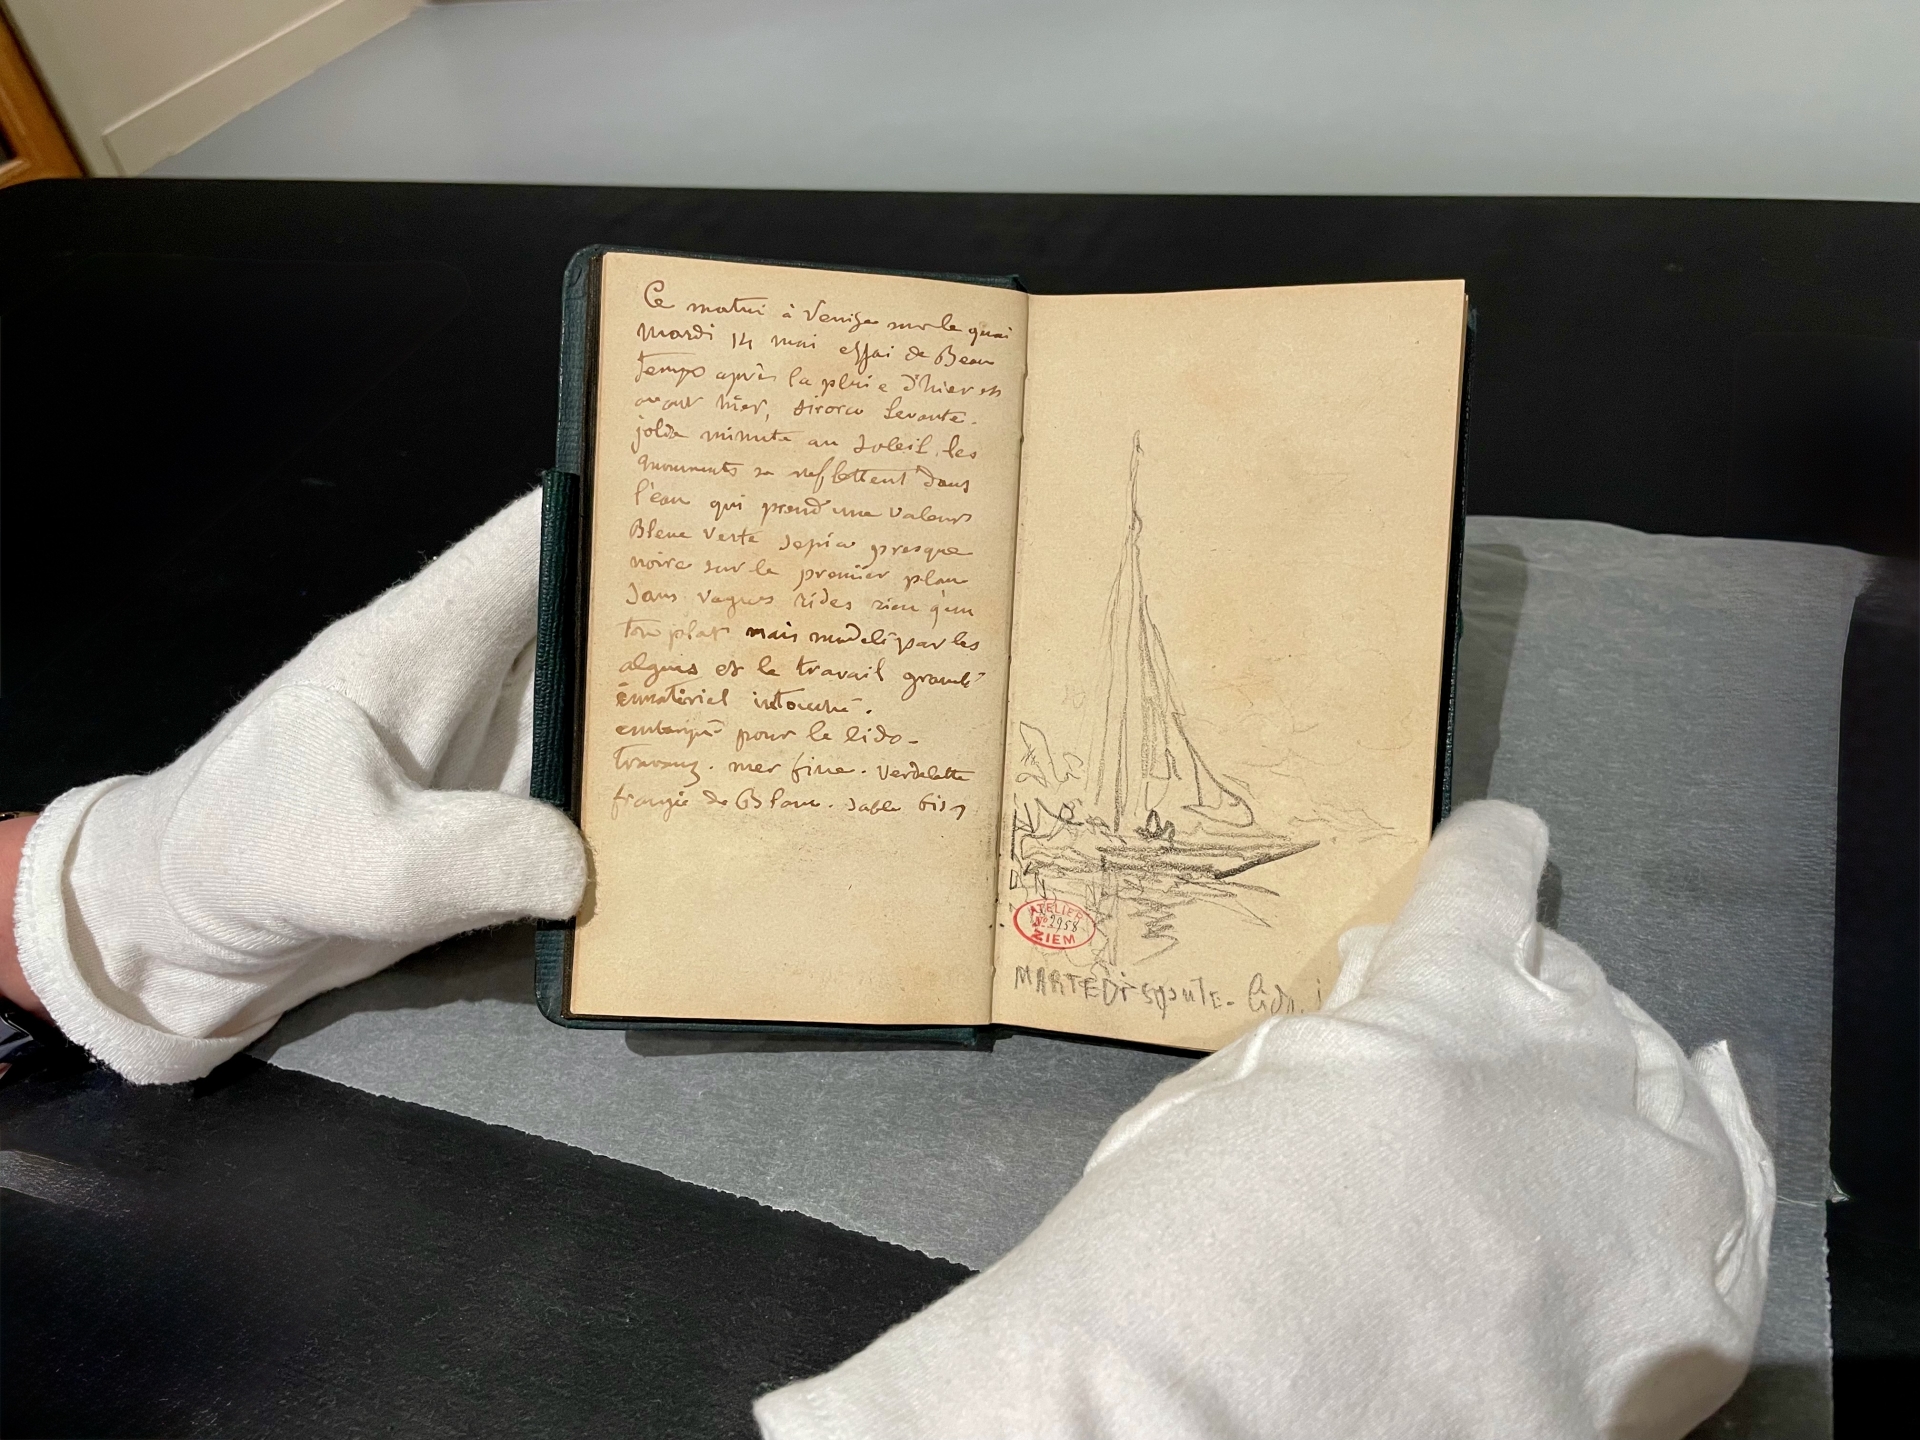 Ce matin à Venise sur le quai
Mardi 14 mai essai de Beau
Tempo après la pluie d'hier et
avant hier, sirocco Levante.
jolie minute au soleil. les
monuments se reflettent dans
l'eau qui prend une valeur
Bleue verte sepia presque
noire sur le premier plan
sans vagues rides rien qu'un
ton plat mais modelé par les
algues et le travail
immatériel
embarqué pour le lido -
mer fine. Verdelette
frangée de Blanc. sable gris
ATELIER
No 2958
ZIEM
MARTEDI